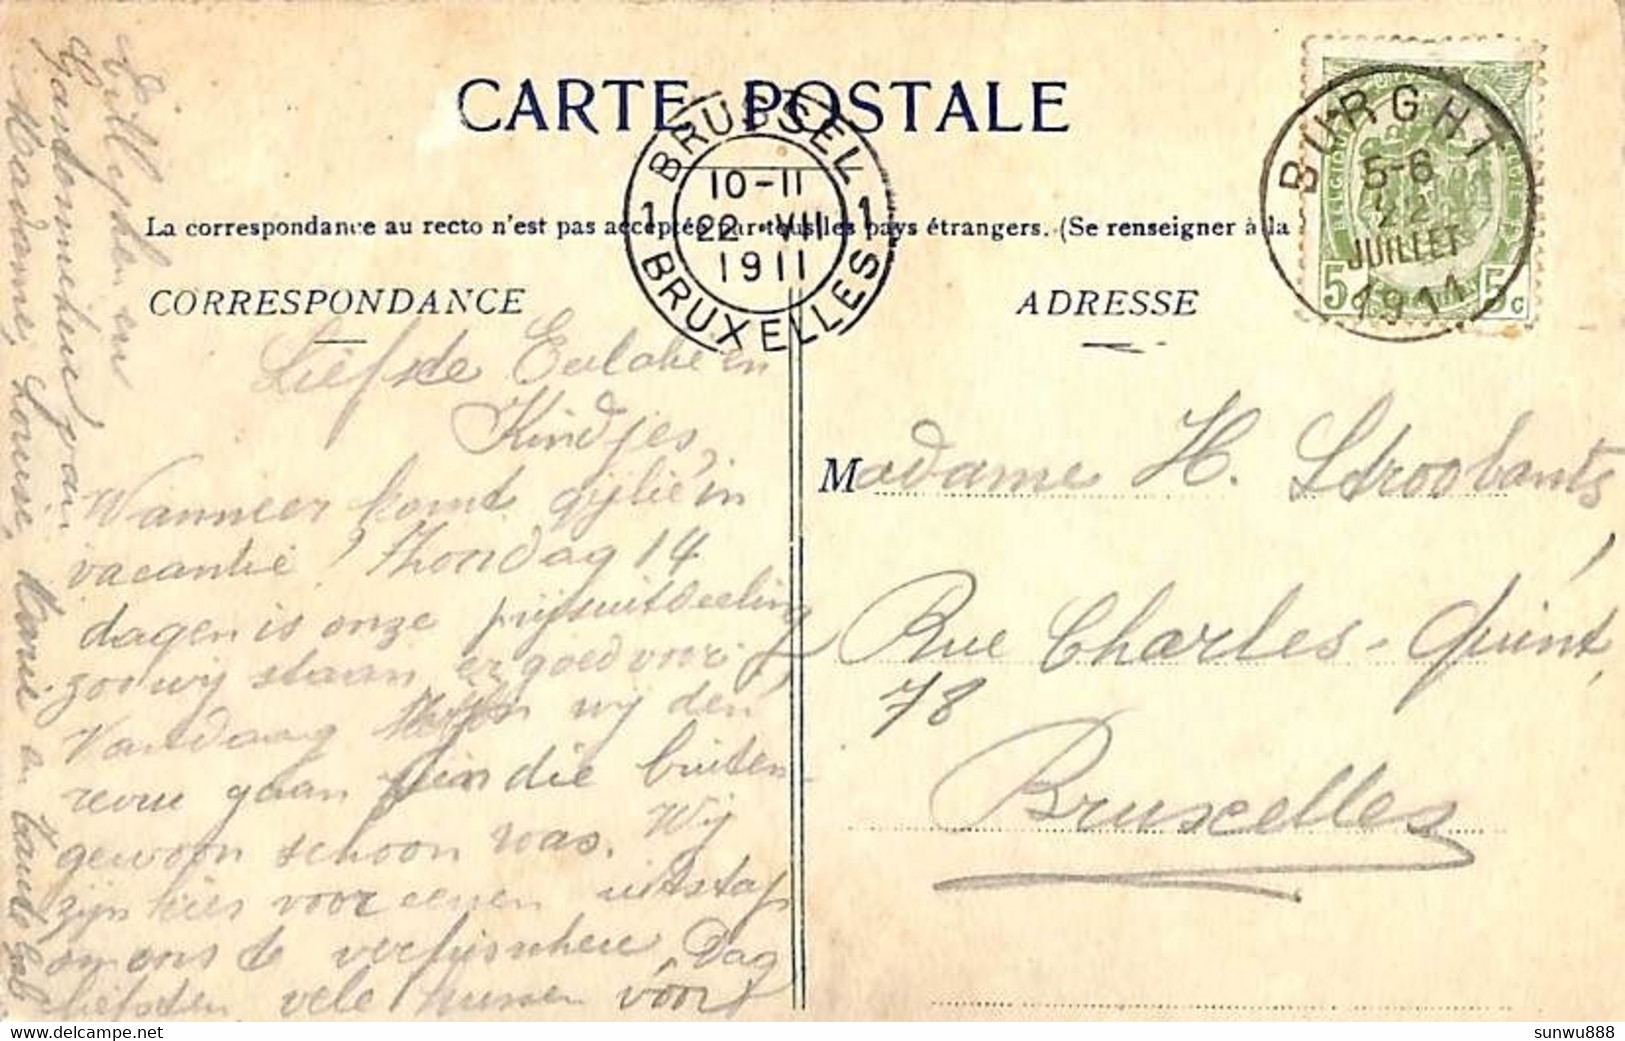 CARTE POSTALE
BRUSSEL
1 10-11 1
22 VII
1911
BRUXELLES
BURGHT
5-6
22
JUILLET
1911
5 5c
La correspondance au recto n'est pas acceptée par tous les pays étrangers. (Se renseigner à la
CORRESPONDANCE
ADRESSE
Liefste en
Kindjes,
Wanneer komt gijlie in
vacantie? Zhondag 14
dagen is onze prijsuitdeeling
zoo wij staan er goed voor
Vandaag wij den
revue gaan zien die buiten-
gewoon schoon was. Wij
zijn hier voor eenen uitstap
om ons te verfrisschen. Dag
liefsten vele kussen voor
en
van
Madame, Louise, Marie en
Madame H. Stroobants
Rue Charles-Quint,
78
Bruxelles
sunwu888